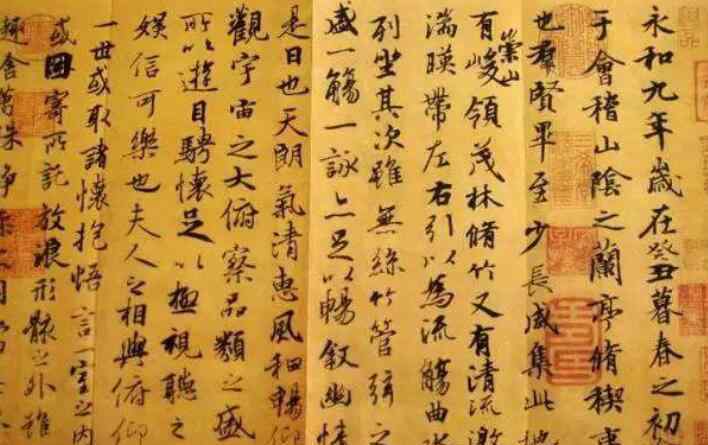 永和九年歲在癸丑暮春之初
于會稽山陰之蘭亭脩稧事
也羣賢畢至少長咸集此地
有崇山峻領茂林脩竹又有清流激
湍暎帶左右引以為流觴曲水
列坐其次雖無絲竹管弦之
盛一觴一詠亦足以暢敘幽情
是日也天朗氣清惠風和暢仰
觀宇宙之大俯察品類之盛
所以遊目騁懷足以極視聽之
娛信可樂也夫人之相與俯仰
一世或取諸懷抱悟言一室之內
或因寄所託放浪形骸之外雖
趣舍萬殊靜躁不同